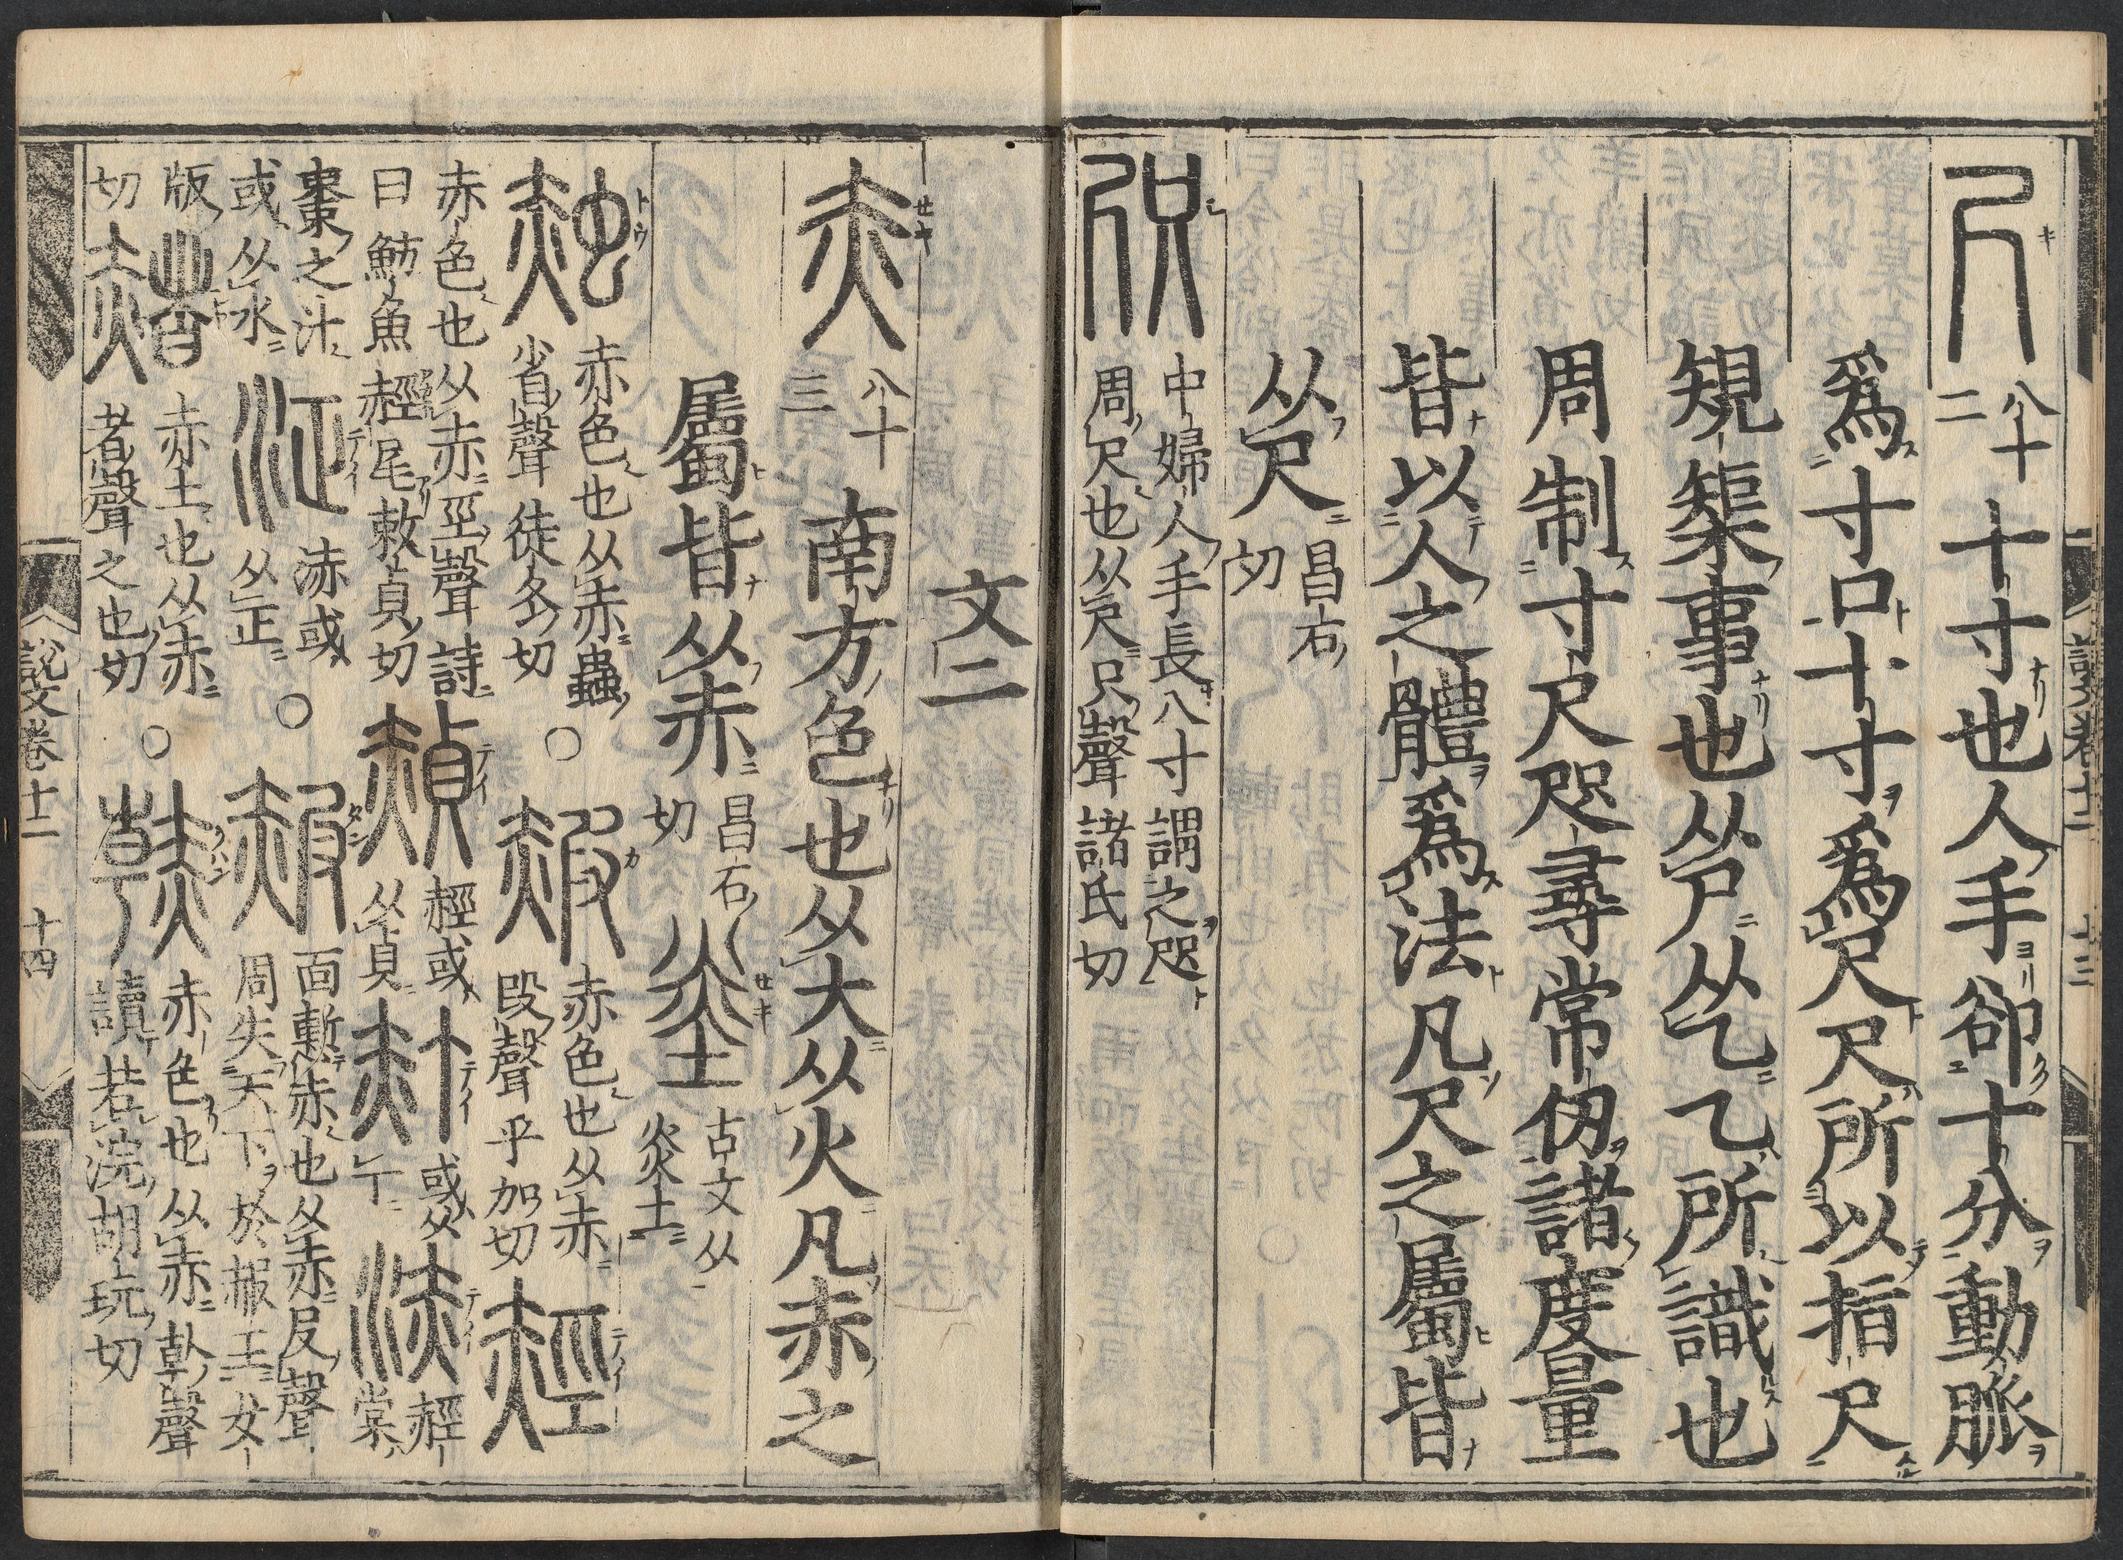 尺 八十二 十寸也人手卻十分動脈
爲寸口十寸爲尺尺所以指尺
規榘事也从尸从乙乙所識也
周制寸尺咫尋常仞諸度量
皆以人之體爲法凡尺之屬皆
从尺 昌石切
咫 中婦人手長八寸謂之咫周尺也从尺只聲諸氏切
文二
赤 八十三 南方色也从大从火凡赤之
屬皆从赤 昌石切 烾 古文从炎土
赨 赤色也从赤蟲省聲徒冬切 ○ 赮 赤色也从赤叚聲乎加切 䞓
赤色也从赤巠聲詩曰魴魚䞓尾敕貞切 赬 䞓或从貞 䞓或从丁 浾 䞓棠
棗之汁或从水 泟 浾或从正 ○ 赧 面慙赤也从赤𠬝聲周失天下於赧王女
版切 赭 赤土也从赤者聲之也切 ○ 赤色也从赤倝聲讀若浣胡玩切
說文卷十一 十四